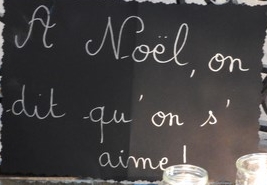 A Noël, on
dit qu'on s'
aime!